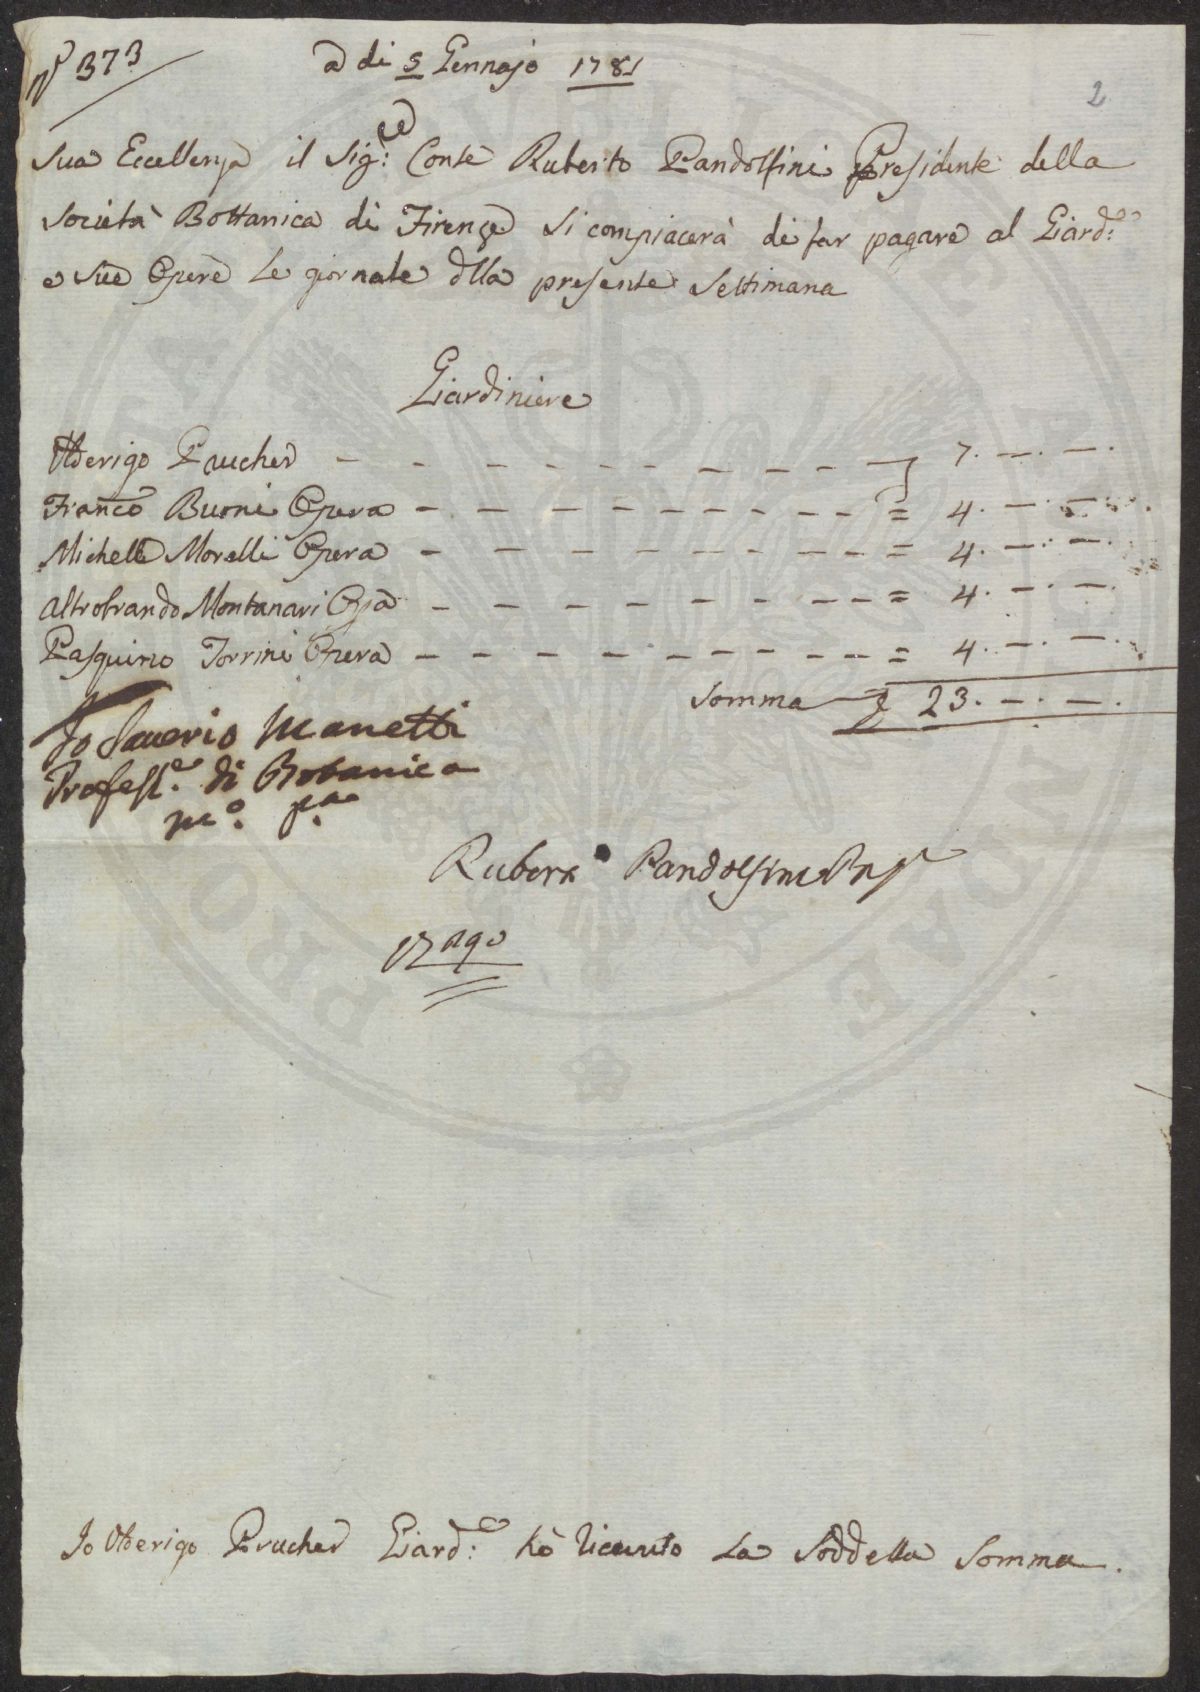 N.º 373
a dì 5 Gennajo 1781
2
Sua Eccellenza il Sig.re Conte Ruberto Pandolfini Presidente della
Società Bottanica di Firenze si compiacerà di far pagare al Giard.re
e sue Opere le giornate dlla presente Settimana
Giardiniere
Ulderigo Prucher - - - - - - - - - 7. —. —.
Franco Buoni Opera - - - - - - - - - = 4. —. —.
Michelle Morelli Opera - - - - - - - - = 4. —. —.
Altrobrando Montanari Opa - - - - - - - - = 4. —. —.
Pasquino Torrini Opera - - - - - - - - - = 4. —. —.
Somma £ 23. —. —.
Io Saverio Manetti
Profess.e di Botanica
m.o p.a
Rubert Pandolfini
Io Ulderigo Prucher Giard.re hò riceuuto La Soddetta Somma.